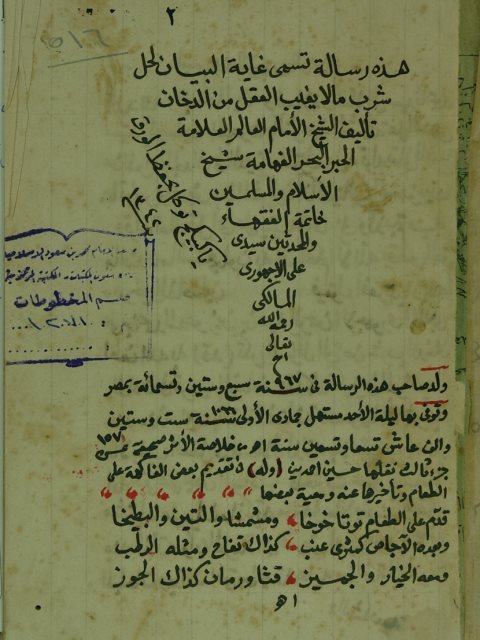 ٢
٥١٦
هذه رسالة تسمى غاية البيان لحل
شرب مالا يغيب العقل من الدخان
تأليف الشيخ الأمام العالم العلامة
الحبر البحر الفهامة شيخ
الأسلام والمسلمين
خاتمة الفقهاء
والمحدثين سيدى
على الاجهورى
المالكى
رحمه الله
تعالى
اه
يا كبيكج توكل بحفظ الورق
١٣٤٤
قسم المخطوطات
ولد صاحب هذه الرسالة فى سنة ٩٦٧ سبع وستين وتسمائة بمصر
وتوفى بها ليلة الأحد مستهل جمادى الأولى سنة ١٠٦٦ ست وستين
والف عاش تسعا وتسعين سنة اه من خلاصة الأثر صحيفة ١٥٧ من
جزء ثالث نقلها حسين احمد (وله) فى تقديم بعض الفاكهة على
الطعام وتأخيرها عنه ومعية بعضها
قدم على الطعام توتا خوخا ومشمشا والتين والبطيخا
وبعده الآجاص كمثرى عنب كذاك تفاح ومثله الرطب
ومعه الخيار والجميز قثا ورمان كذاك الجوز
اه